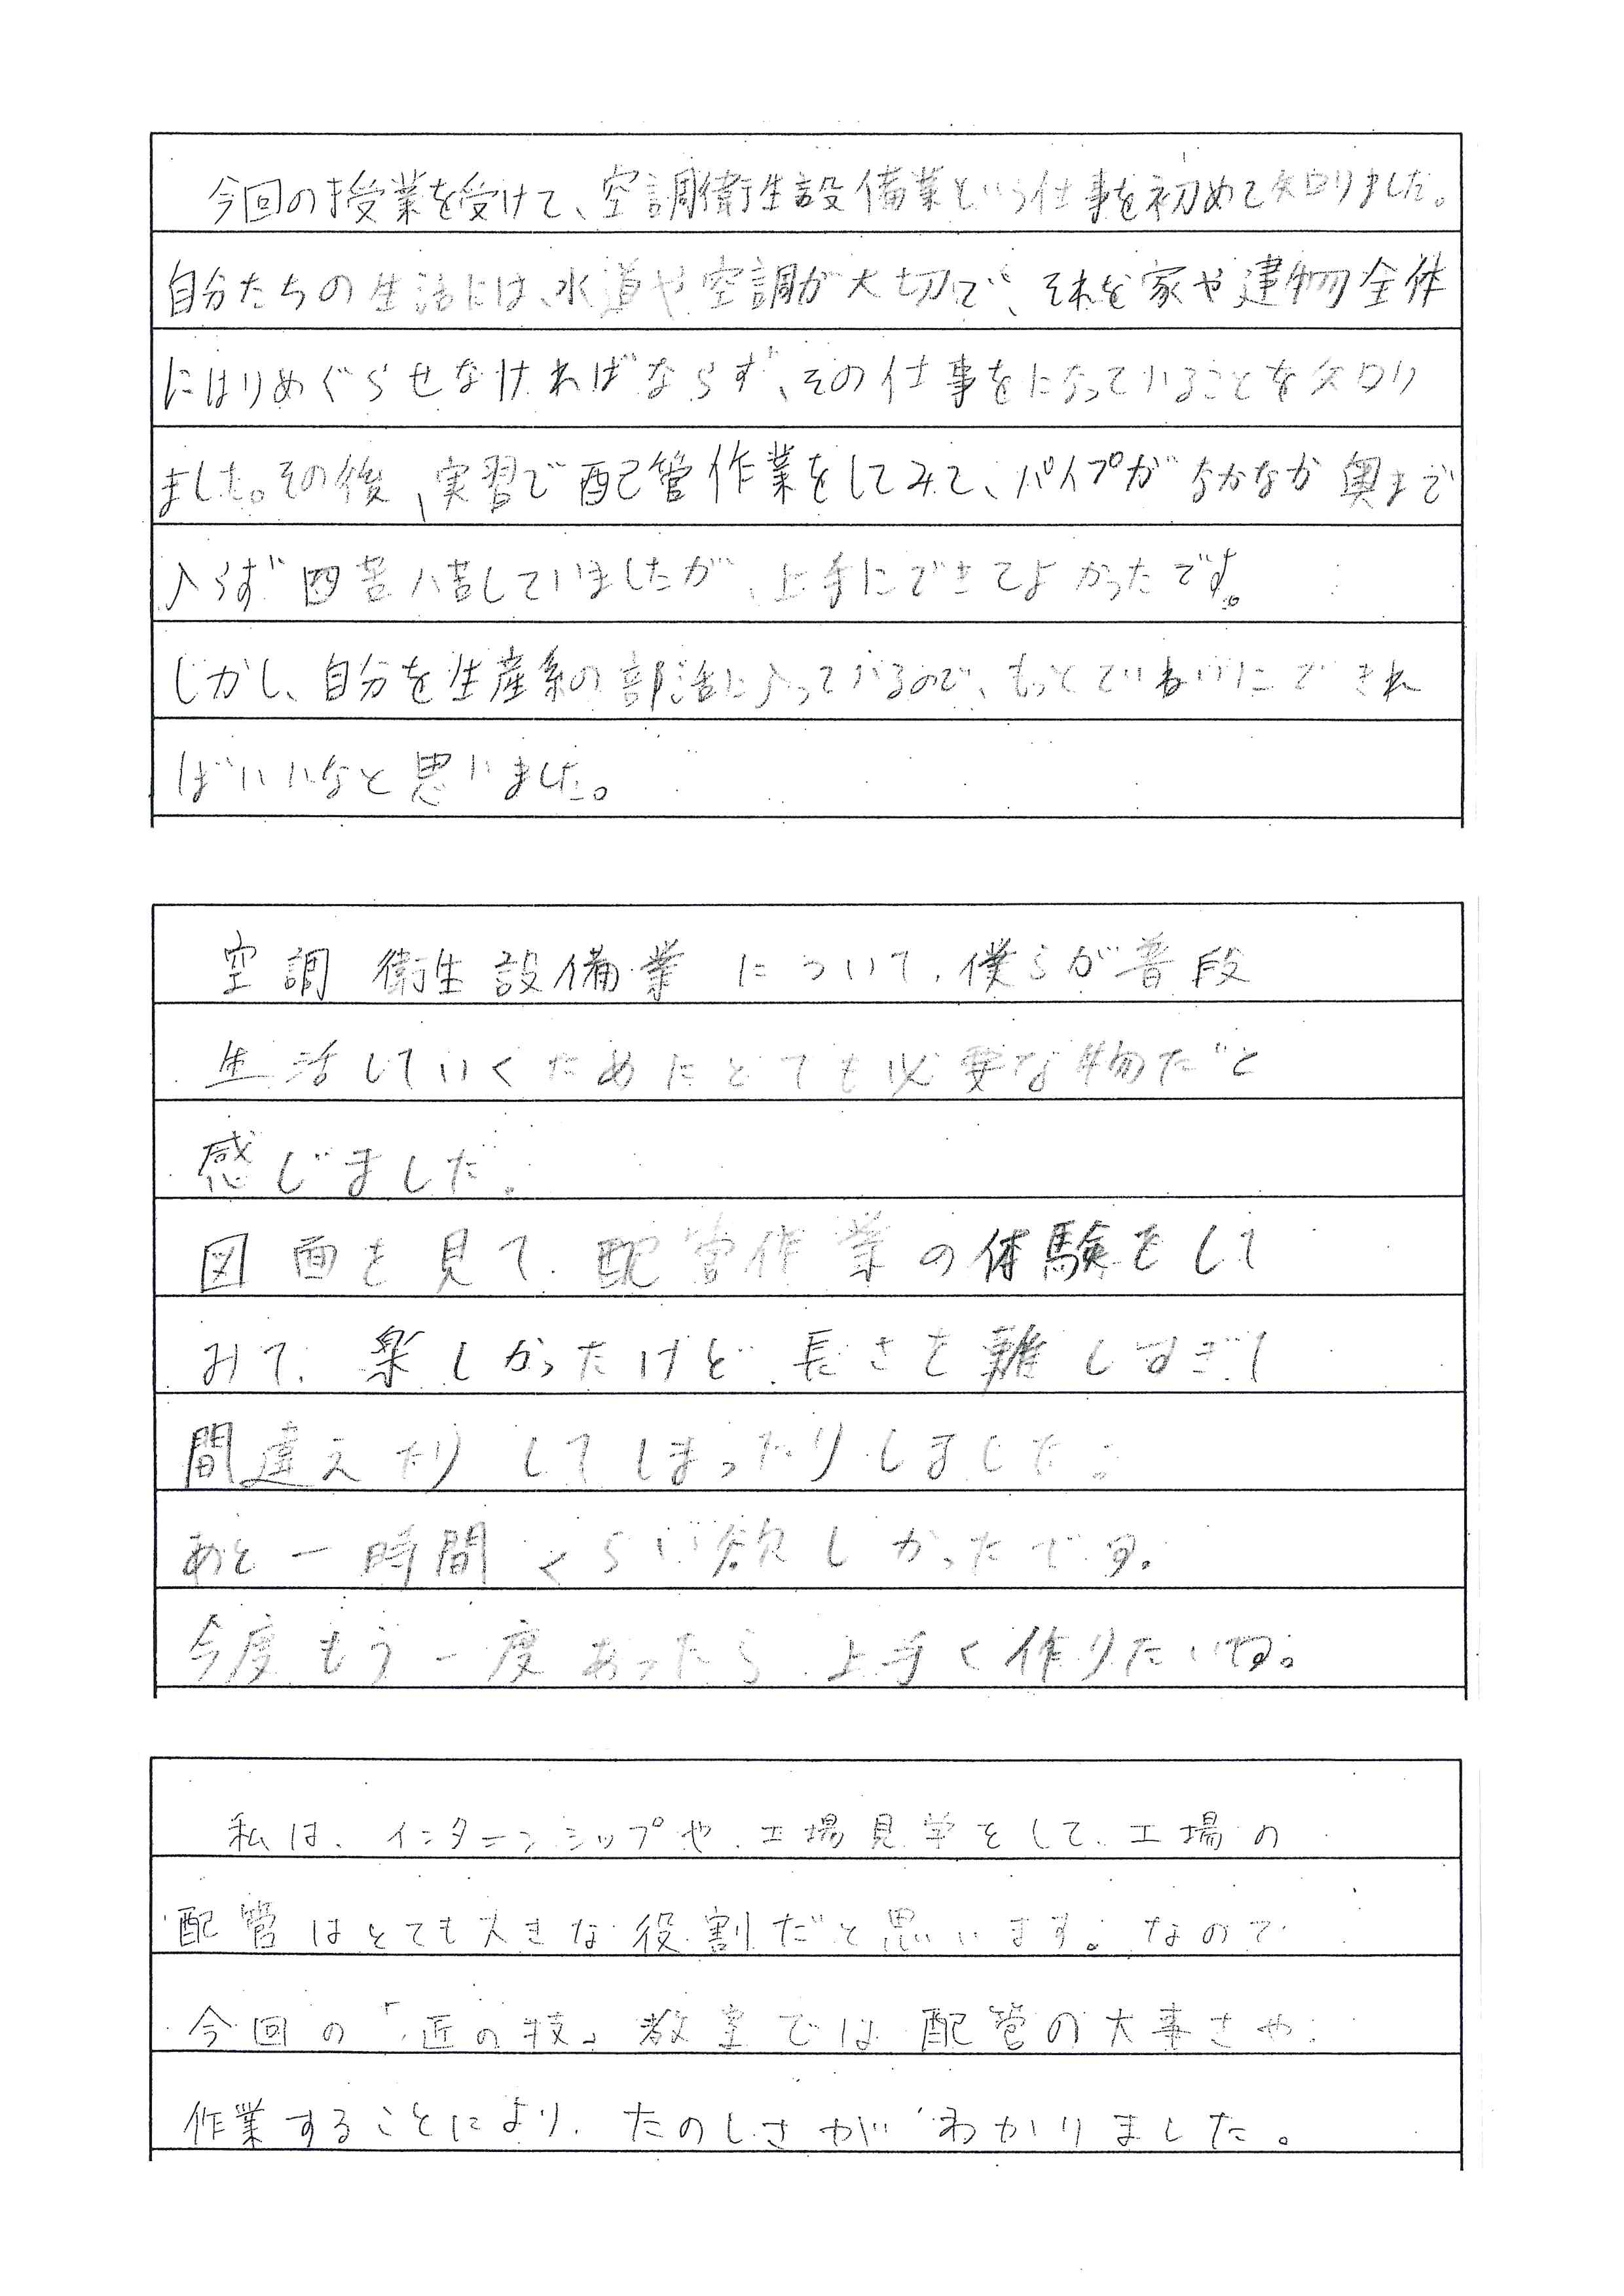 今回の授業を受けて、空調衛生設備業という仕事を初めて知りました。
自分たちの生活には、水道や空調が大切で、それを家や建物全体
にはりめぐらせなければならず、その仕事をになっていることを知り
ました。その後、実習で配管作業をしてみて、パイプがなかなか奥まで
入らず四苦八苦していましたが、上手にできてよかったです。
しかし、自分を生産系の部活に入っているので、もっとていねいにできれ
ばいいなと思いました。
空調衛生設備業について、僕らが普段
生活していくためにとても必要な物だと
感じました。
図面を見て、配管作業の体験をして
みて、楽しかったけど、長さを難しすぎて
間違えたりしてしまったりしました。
あと一時間くらい欲しかったです。
今度もう一度あったら、上手く作りたいです。
私は、インターンシップや、工場見学をして、工場の
配管はとても大きな役割だと思います。なので
今回の「匠の技」教室では配管の大事さや
作業することにより、たのしさがわかりました。